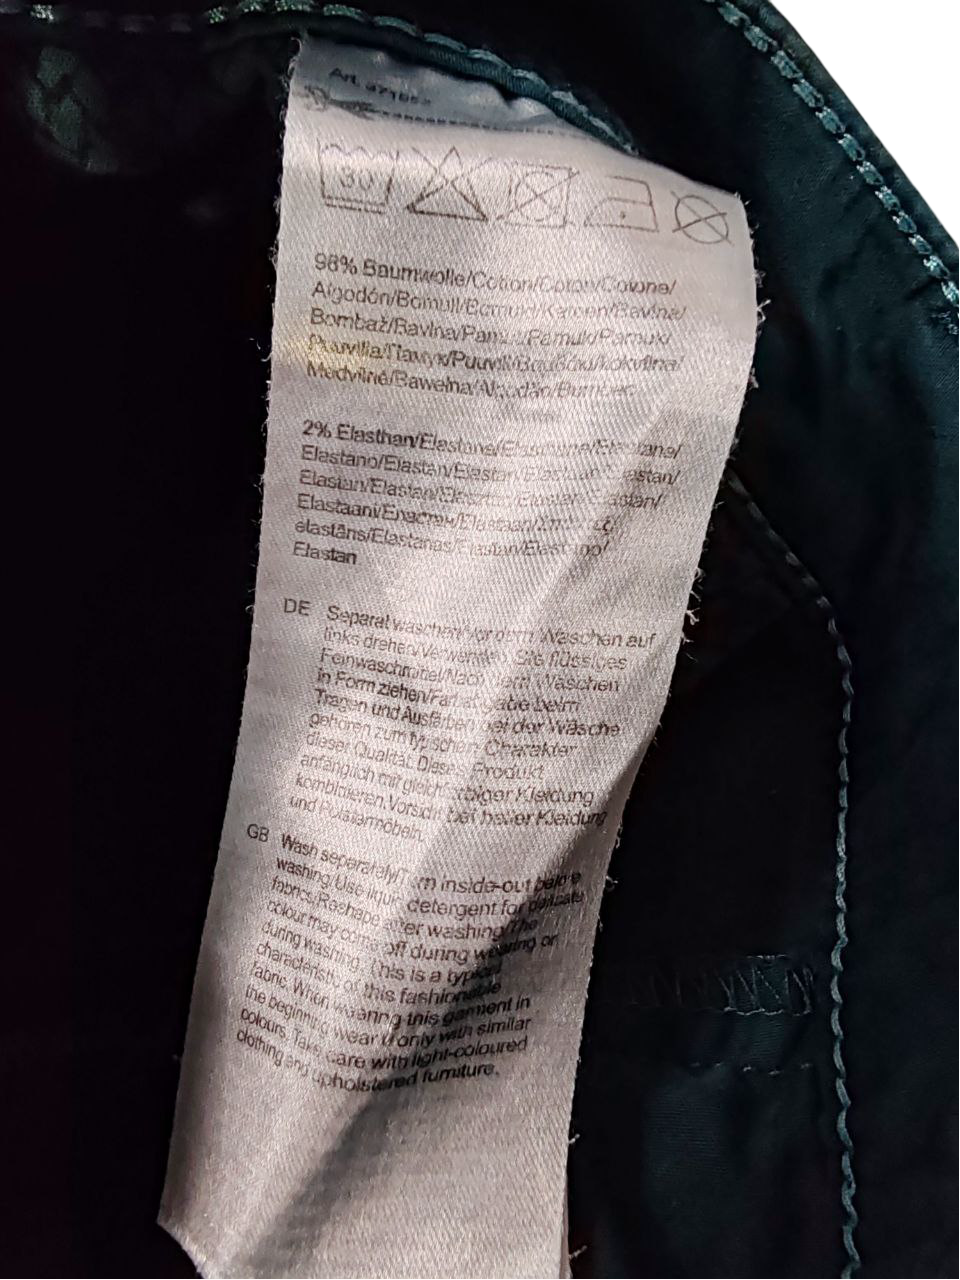 Art.
30
98% Baumwolle/Cotton/Coton/Cotone/
Algodón/Bomull/Bomuld/Katoen/Bavlna/
Bombaž/Bavlna/Pamuk/Pamuk/
Puuvilla/Памук/Puuvill/Βαμβάκι/kokvilna/
Medvilnė/Bawełna/Algodão/Bumbac
2% Elasthan/Elastane/Elasthanne/Elastane/
Elastano/Elastan/Elastan/Elastan/
Elastan/Elastan/Elastan/Elastan/Elastan/
Elastaani/Еластан/Elastaan/
elastāns/Elastanas/Elastan/Elastano/
Elastan
DE Separat waschen/Vor dem Waschen auf
links drehen/Verwenden Sie flüssiges
Feinwaschmittel/Nach dem Waschen
in Form ziehen/Farbabgabe beim
Tragen und Ausfärben bei der Wäsche
gehören zum typischen Charakter
dieser Qualität. Dieses Produkt
anfänglich mit gleichfarbiger Kleidung
kombinieren. Vorsicht bei heller Kleidung
und Polstermöbeln.
GB Wash separately/Turn inside-out before
washing/Use liquid detergent for delicate
fabrics/Reshape after washing/The
colour may come off during wearing or
during washing. This is a typical
characteristic of this fashionable
fabric. When wearing this garment in
the beginning wear it only with similar
colours. Take care with light-coloured
clothing and upholstered furniture.